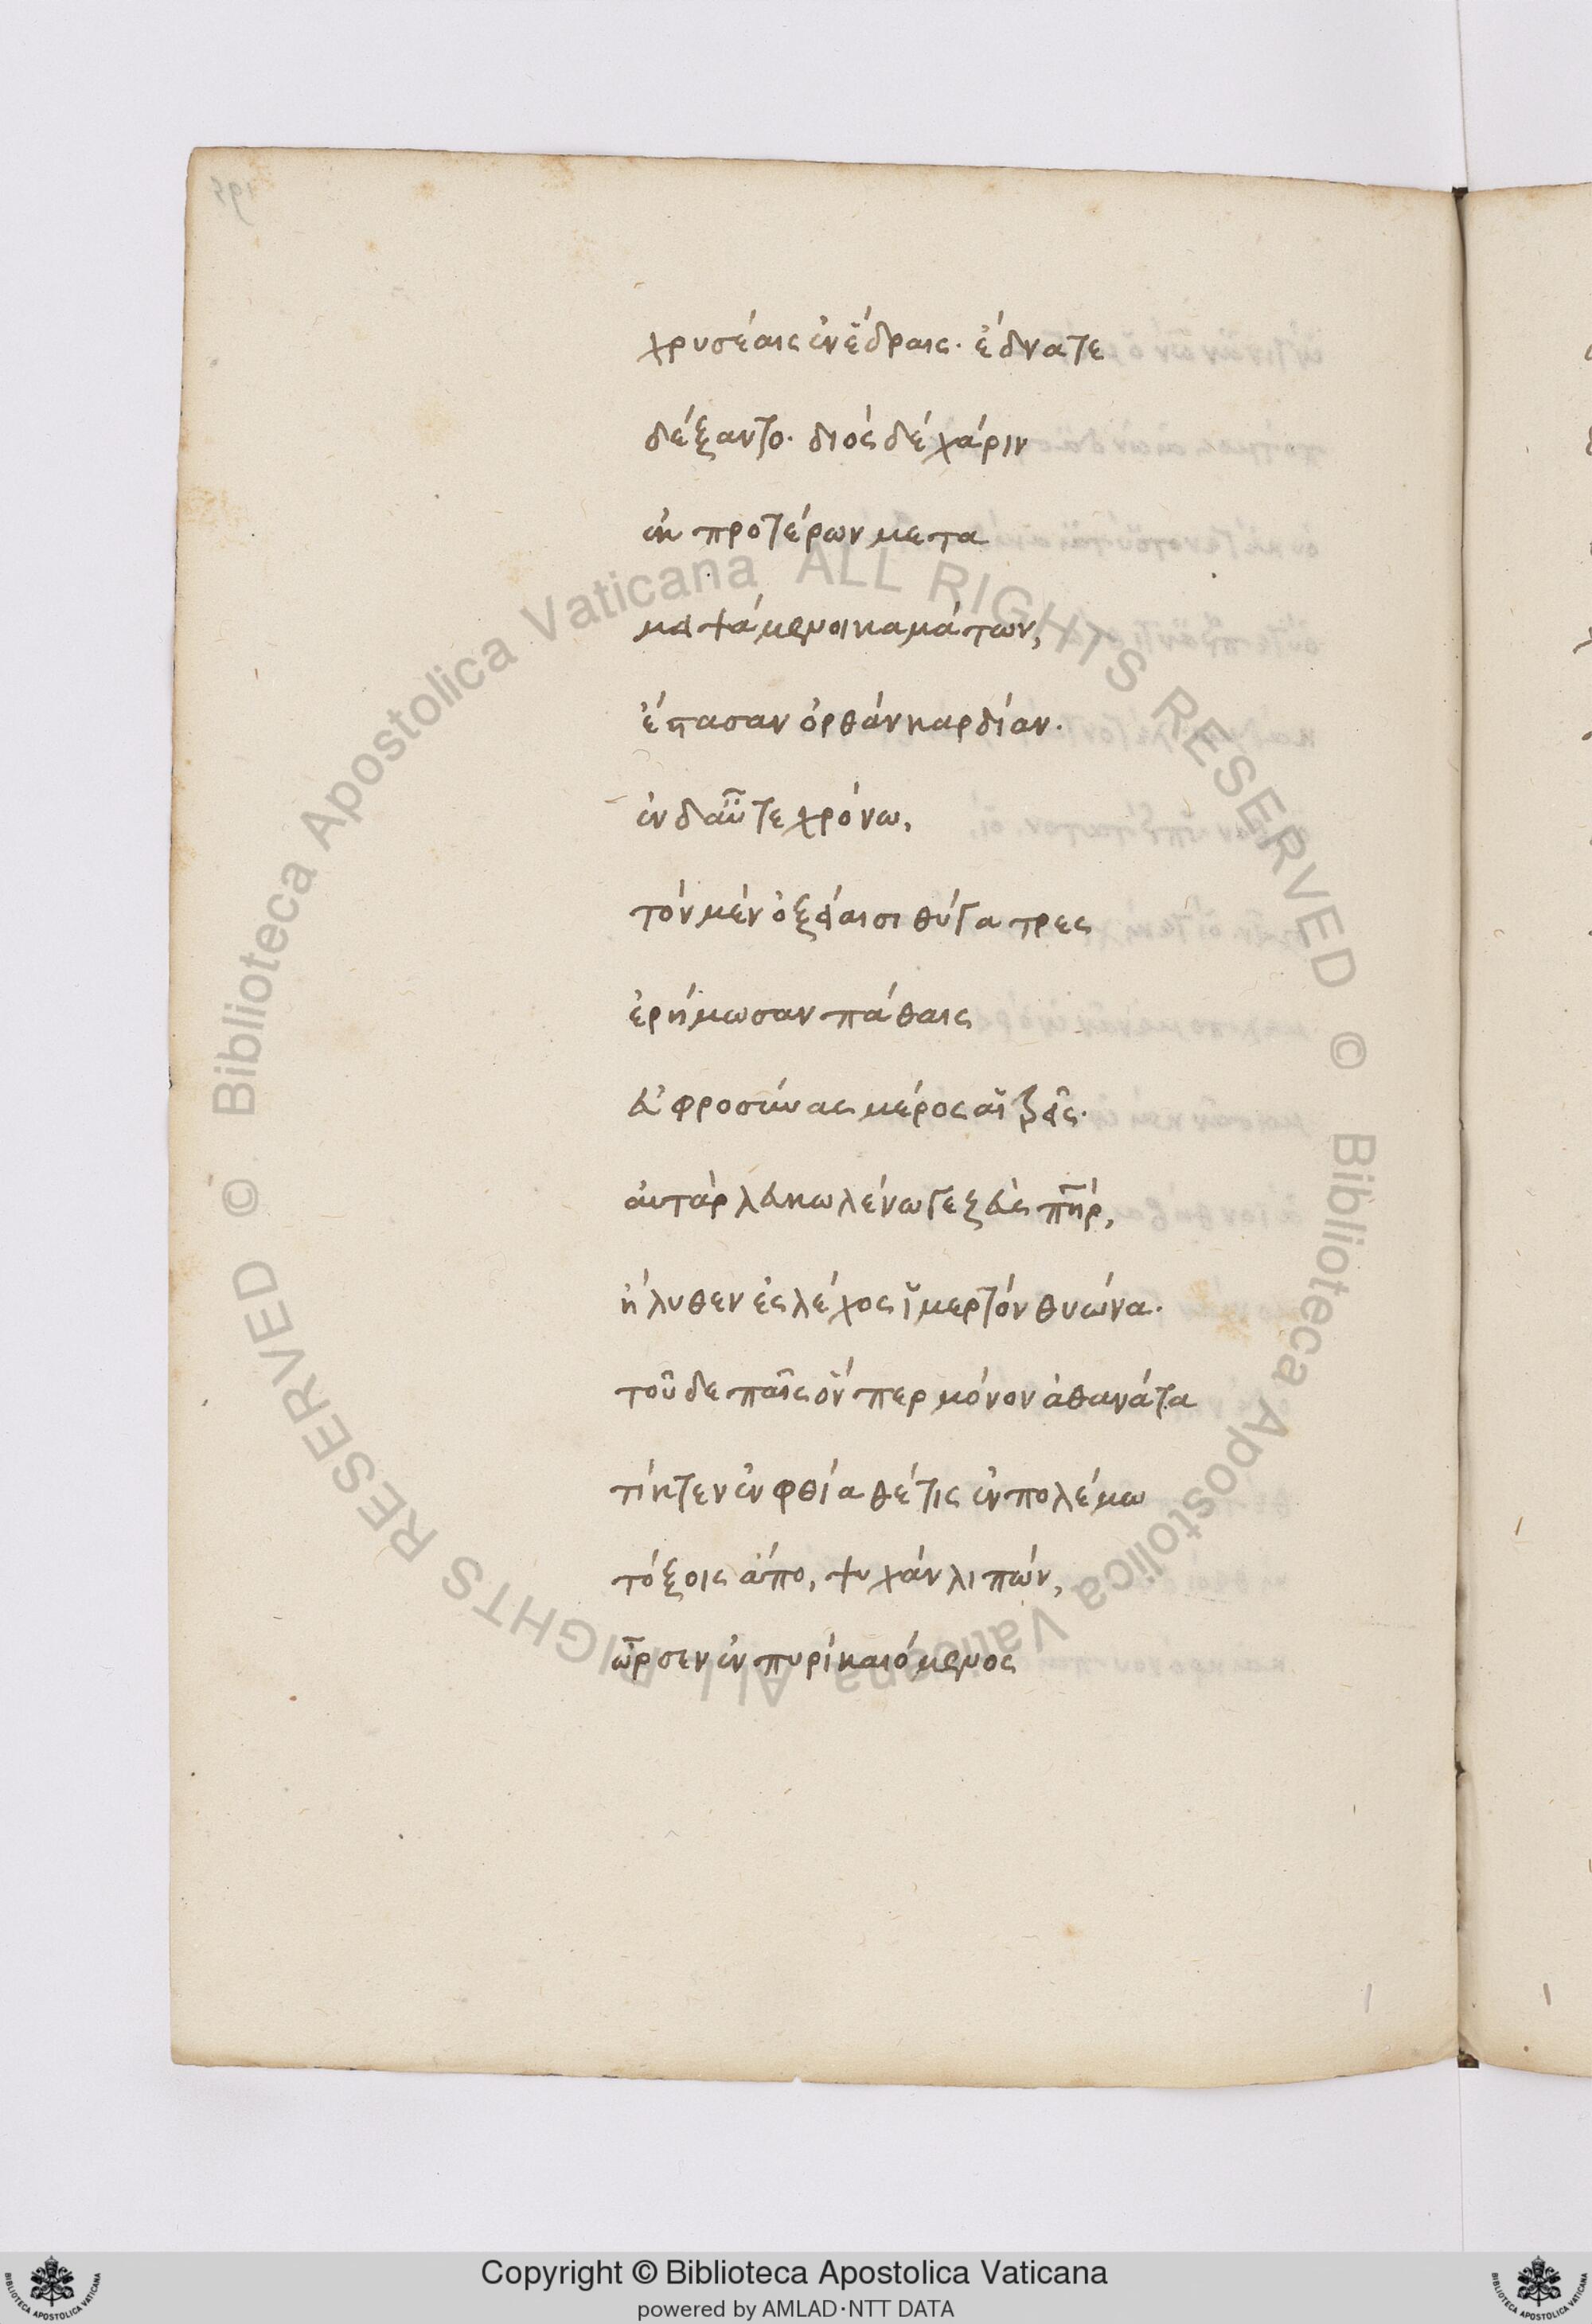 χρυσέαις ἐν ἕδραις· ἕδνα τε
δέξαντο· διὸς δὲ χάριν
ἐκ προτέρων μετα
μειψάμενοι καμάτων,
ἔστασαν ὀρθὰν καρδίαν·
ἐν δ' αὖτε χρόνω,
τὸν μὲν ὀξείαισι θύγατρες
ἐρήμωσαν πάθαις
εὐφροσύνας μέρος αἱ τρεῖς·
ἀυτὰρ λευκωλένω γε ζεὺς πατὴρ,
ἤλυθεν ἐς λέχος ἱμερτὸν θυώνα·
τοῦ δε παῖς ὅν περ μόνον ἀθανάτα
τίκτεν ἐν φθία θέτις ἐν πολέμω
τόξοις ἄπο, ψυχὰν λιπὼν,
ὦρσεν ἐν πυρὶ καιόμενος
© Biblioteca Apostolica Vaticana ALL RIGHTS RESERVED
© Biblioteca Apostolica Vaticana ALL RIGHTS RESERVED
Copyright © Biblioteca Apostolica Vaticana
powered by AMLAD·NTT DATA
BIBLIOTECA APOSTOLICA VATICANA
BIBLIOTECA APOSTOLICA VATICANA